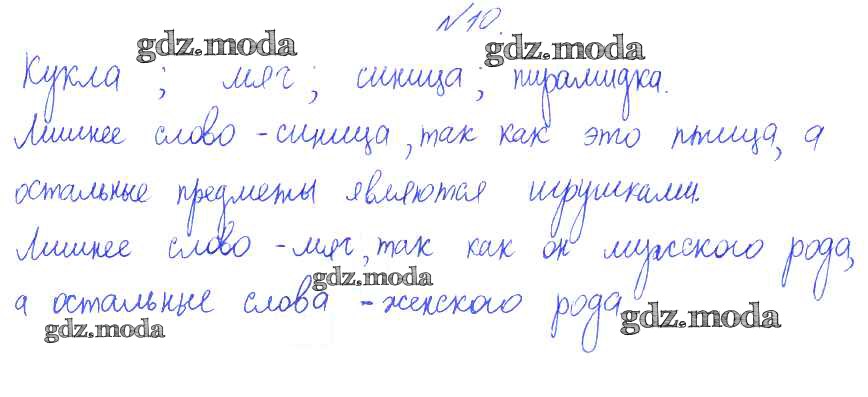 №10.
gdz.moda gdz.moda
Кукла ; мяч ; синица ; пирамидка.
Лишнее слово - синица, так как это птица, а
остальные предметы являются игрушками.
Лишнее слово - мяч, так как он мужского рода,
gdz.moda
а остальные слова - женского рода
gdz.moda gdz.moda